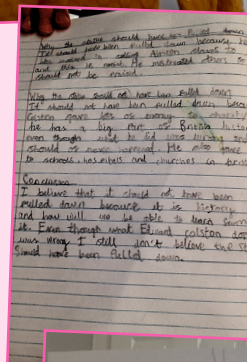 Why the statue should have been Pulled down
It should have been Pulled down because he
was involved in African slaves to
and this is racist. He mistreated them so
should not be racist.
Why the statue should not have been pulled down
It should not have been pulled down because
Colston gave lots of money to charity
he has a big part of British history
even though what he did was wrong and
should be more He also gave
to schools, hospitals and churches in bris
Conclusion
I believe that it should not have been
pulled down because it is history
and how will we be able to learn
it. Even though what Edward colston did
was wrong I still don't believe the st
Should have been Pulled down.